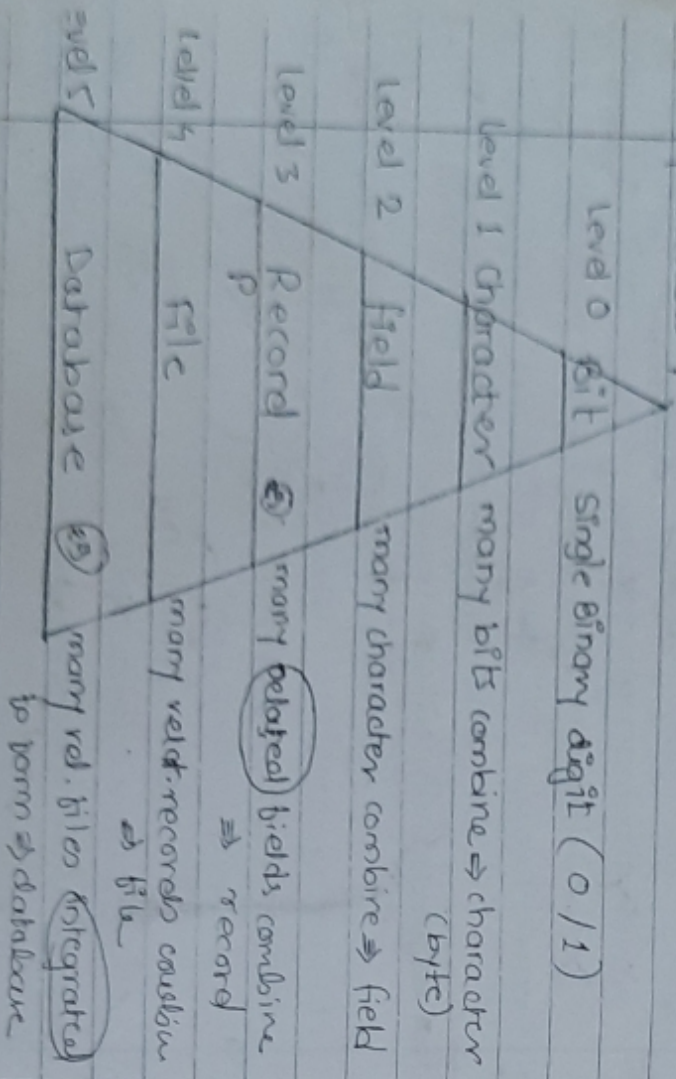 Level 0 Bit Single Binary digit (0/1)
Level 1 Character many bits combine ⇒ character
(byte)
Level 2 field many character combine ⇒ field
Level 3 Record many related fields combine
⇒ record
Level 4 File many relat. records combin
⇒ file
evel 5 Database eg many rel. files integrated
to form ⇒ database